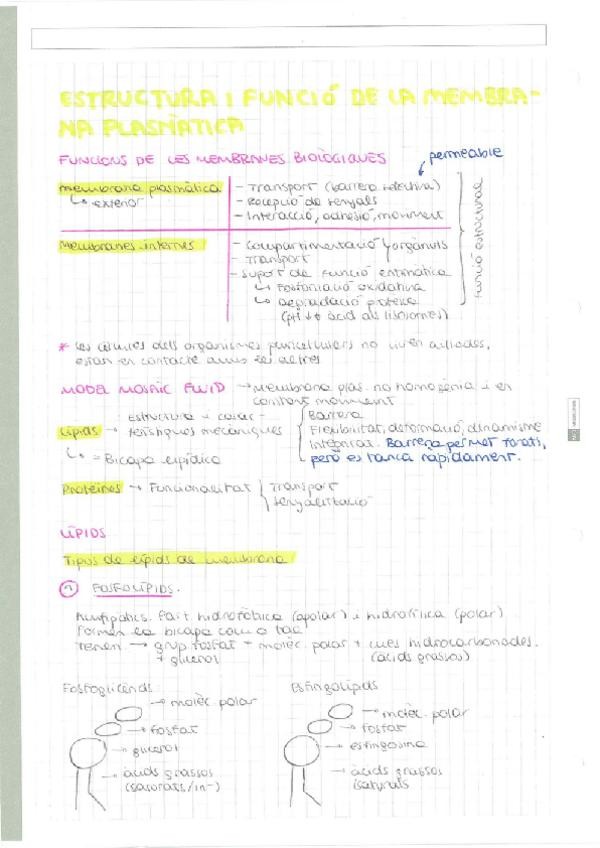 ESTRUCTURA I FUNCIÓ DE LA MEMBRA-
NA PLASMÀTICA
FUNCIONS DE LES MEMBRANES BIOLÒGIQUES
permeable
membrana plasmàtica
↳ exterior
- Transport (barrera selectiva)
- Recepció de senyals
- Interacció, adhesió, moviment
Membranes internes
- Compartimentació orgànuls
- Transport
- Suport de funció enzimàtica
↳ Fosforilació oxidativa
↳ Degradació proteica
(pH ↓↓ àcid als lisosomes)
Funció estructural
* Les cèl·lules dels organismes pluricel·lulars no viuen aïllades,
estan en contacte amb les altres
MODEL MOSAIC FLUID → Membrana plas. no homogènia i en
constant moviment
Lípids → Estructura i carac-
terístiques mecàniques
Barrera
Flexibilitat, deformació, dinamisme
Integritat. Barrera permet forats,
però es tanca ràpidament.
↳ = Bicapa lipídica
Proteïnes → Funcionalitat
Transport
Senyalització
LÍPIDS
Tipus de lípids de membrana
1 FOSFOLÍPIDS.
Amfipàtics. Part hidrofòbica (apolar) i hidrofílica (polar)
Formen la bicapa com a tal
Tenen → grup fosfat + molèc. polar + cues hidrocarbonades.
+ glicerol (àcids grassos)
Fosfoglicèrids
→ molèc. polar
→ fosfat
→ glicerol
→ àcids grassos
(saturats/in-)
Esfingolípids
→ molèc. polar
→ fosfat
→ esfingosina
→ àcids grassos
(saturats